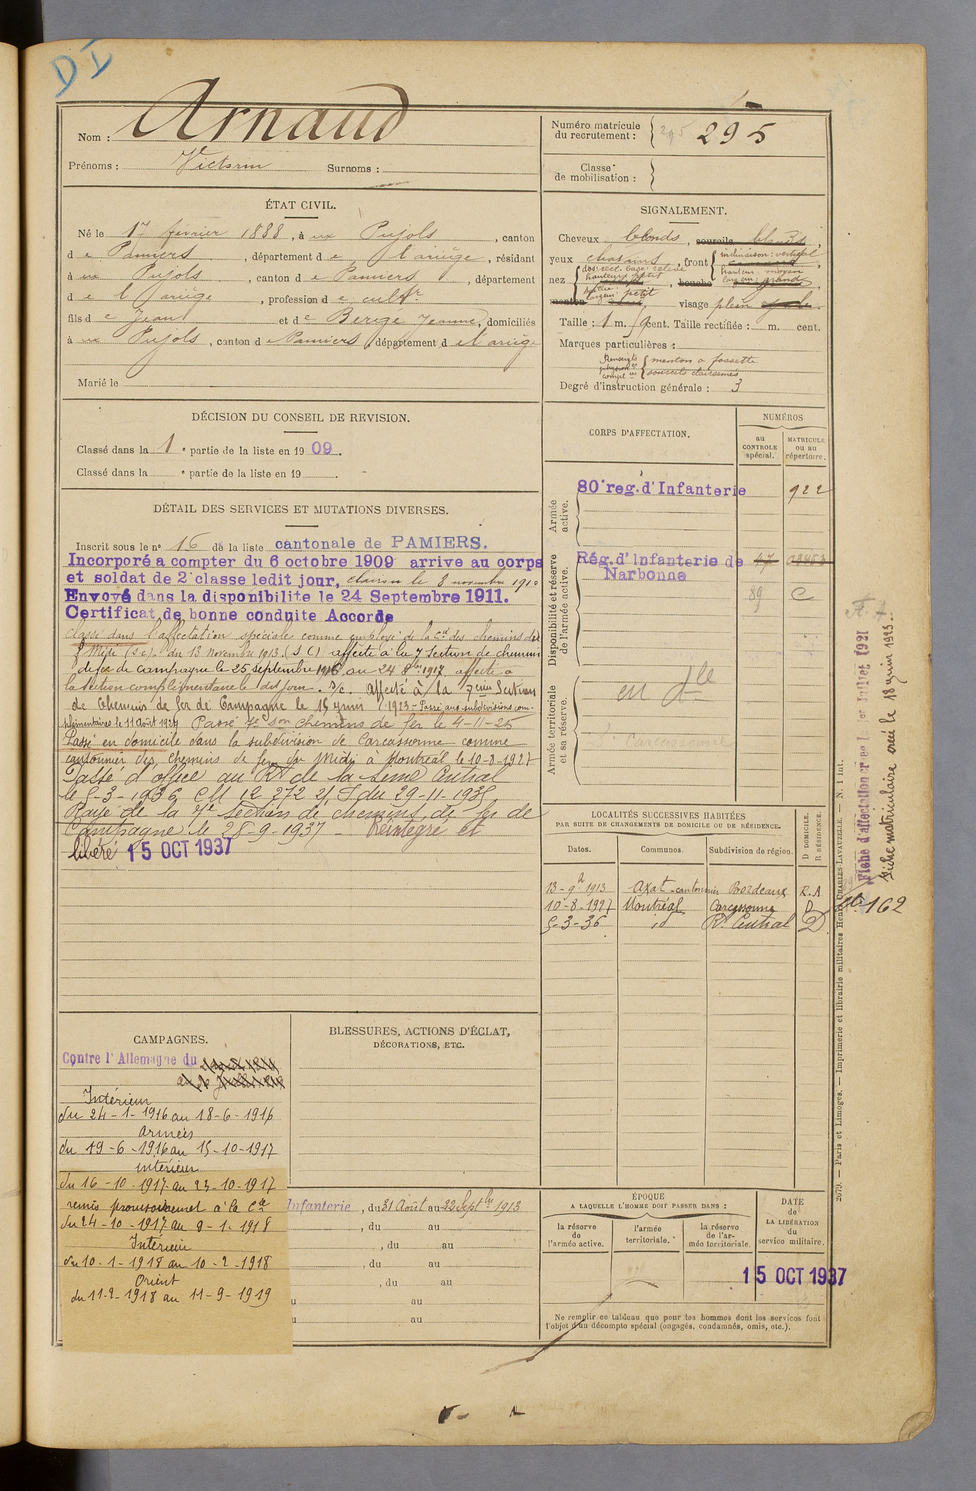 DI
Nom : Arnaud
Prénoms : Victorin Surnoms :
Numéro matricule du recrutement : 295 295
Classe de mobilisation :
ÉTAT CIVIL.
Né le 17 février 1888, à Pujols, canton
d e Pamiers, département d e l'ariège, résidant
à Pujols, canton d e Pamiers, département
d e l'ariège, profession d e cultr
fils d e Jean et d e Berigé Jeanne, domiciliés
à Pujols, canton d e Pamiers, département d e l'ariège
Marié le
SIGNALEMENT.
Cheveux blonds, sourcils blonds
yeux chatains, front inclinaison: verticale
hauteur: moyen
largeur: grand
nez dos: rect. base: relevée
hauteur: petit
saillie:
largeur: petit
bouche
menton visage plein
Taille : 1 m. cent. Taille rectifiée : m. cent.
Marques particulières :
menton à fossette
sourcils clairsemés
Degré d'instruction générale : 3
DÉCISION DU CONSEIL DE REVISION.
Classé dans la 1e partie de la liste en 1909.
Classé dans la e partie de la liste en 19
CORPS D'AFFECTATION.
NUMÉROS
au CONTROLE spécial.
MATRICULE ou au répertoire.
Armée active.
80e reg. d'Infanterie 922
Disponibilité et réserve de l'armée active.
Rég. d'Infanterie de Narbonne 47
89 C
Armée territoriale et sa réserve.
en dle
Carcassonne
DÉTAIL DES SERVICES ET MUTATIONS DIVERSES.
Inscrit sous le no 16 de la liste cantonale de PAMIERS.
Incorporé a compter du 6 octobre 1909 arrive au corps
et soldat de 2e classe ledit jour, clairon le 8 novembre 1910
Envoyé dans la disponibilite le 24 Septembre 1911.
Certificat de bonne conduite Accordé
Classé dans l'affectation spéciale comme employé de la Cie des chemins de
f. Midi (S.C.) du 13 novembre 1913. (S C) affecté à la 7 Section de chemins
de fer de campagne le 25 septembre 1916 au 24 8bre 1917, affecté à
la section complémentaire le dit jour. S/C. Affecté à la 7ème Section
de Chemins de fer de Campagne le 15 juin 1923 - Passé aux subdivisions com-
plémentaires le 11 Août 1924 Passé 7e son chemins de fer le 4-11-25
Passé en domicile dans la subdivision de Carcassonne comme
cantonnier des chemins de fer du Midi à Montréal le 10-8-1927
Passé d'office au Rt de la Seine Central
le 5-3-1936 CM 12 272 2/S du 29-11-1935
Rayé de la 7e section de chemins de fer de
Campagne le 28-9-1937 - Réintégré et
libéré 15 OCT 1937
LOCALITÉS SUCCESSIVES HABITÉES
PAR SUITE DE CHANGEMENTS DE DOMICILE OU DE RÉSIDENCE.
Dates. Communes. Subdivision de région. D DOMICILE. R RÉSIDENCE.
13-9bre 1913 Axat cantonnier Bordeaux R.A
10-8-1927 Montréal Carcassonne D
5-3-36 id Rt Central D
Fiche matriculaire créée le 18 juin 1923.
162
2679. — Paris et Limoges. — Imprimerie et librairie militaires Henri CHARLES-LAVAUZELLE. — N. 1 int.
CAMPAGNES.
Contre l'Allemagne du
Intérieur
du 24-1-1916 au 18-6-1916
armées
du 19-6-1916 au 15-10-1917
intérieur
du 16-10-1917 au 23-10-1917
remis provisoirement à la Cie
du 24-10-1917 au 9-1-1918
Intérieur
du 10-1-1918 au 10-2-1918
Orient
du 11-2-1918 au 11-9-1919
BLESSURES, ACTIONS D'ÉCLAT,
DÉCORATIONS, ETC.
Infanterie, du 31 Août au 22 Septbre 1913
, du au
, du au
, du au
, du au
u au
u au
ÉPOQUE
A LAQUELLE L'HOMME DOIT PASSER DANS :
la réserve de l'armée active.
l'armée territoriale.
la réserve de l'armée territoriale.
DATE de LA LIBÉRATION du service militaire.
15 OCT 1937
Ne remplir ce tableau que pour les hommes dont les services font
l'objet d'un décompte spécial (engagés, condamnés, omis, etc.).